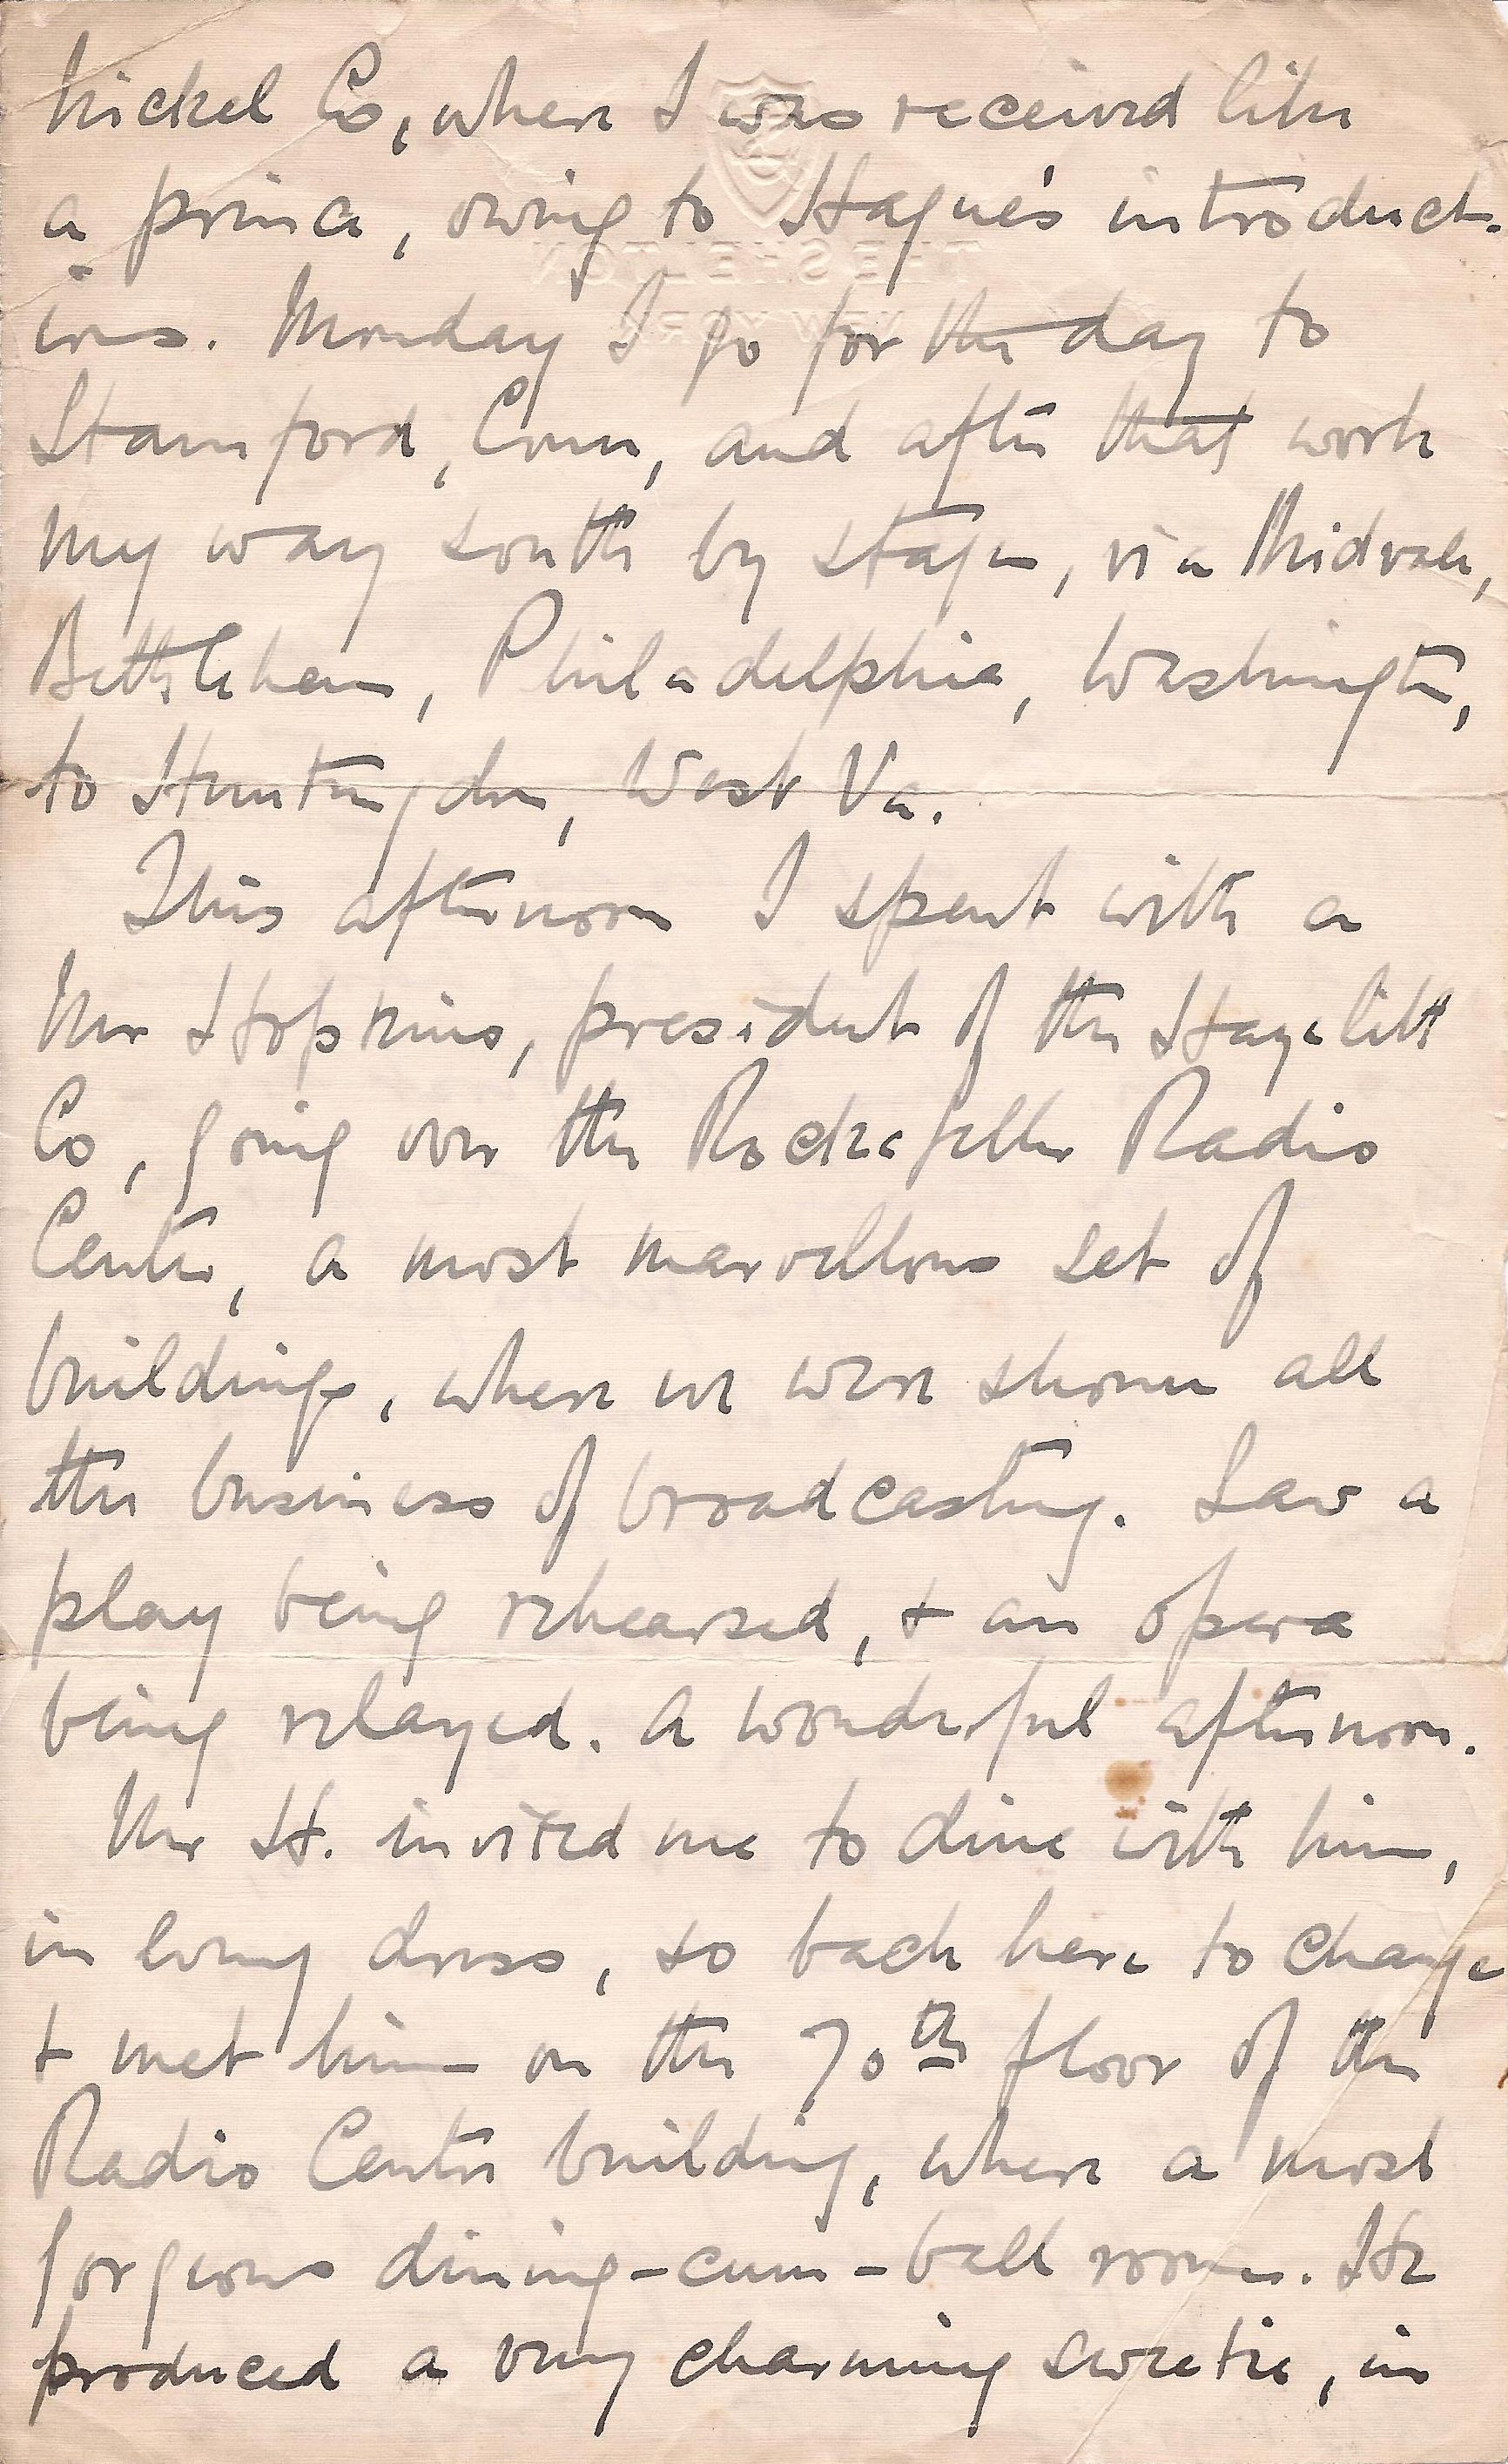 Nickel Co, where I was received like
a prince, owing to Hague's introduct-
ions. Monday I go for the day to
Stamford, Conn, and after that work
my way south by stages, via Midvale,
Bethlehem, Philadelphia, Washington,
to Huntingdon, West Va.
This afternoon I spent with a
Mr Hopkins, president of the
Co, going over the Rockefeller Radio
Centre, a most marvellous set of
buildings, where we were shown all
the business of broadcasting. Saw a
play being rehearsed, + an opera
being relayed. A wonderful afternoon.
Mr H. invited me to dine with him,
in evening dress, so back here to change
+ met him on the 70th floor of the
Radio Centre building, where a most
gorgeous dining-cum-ball room. He
produced a very charming sweetie, in
THE SHELTON
NEW YORK